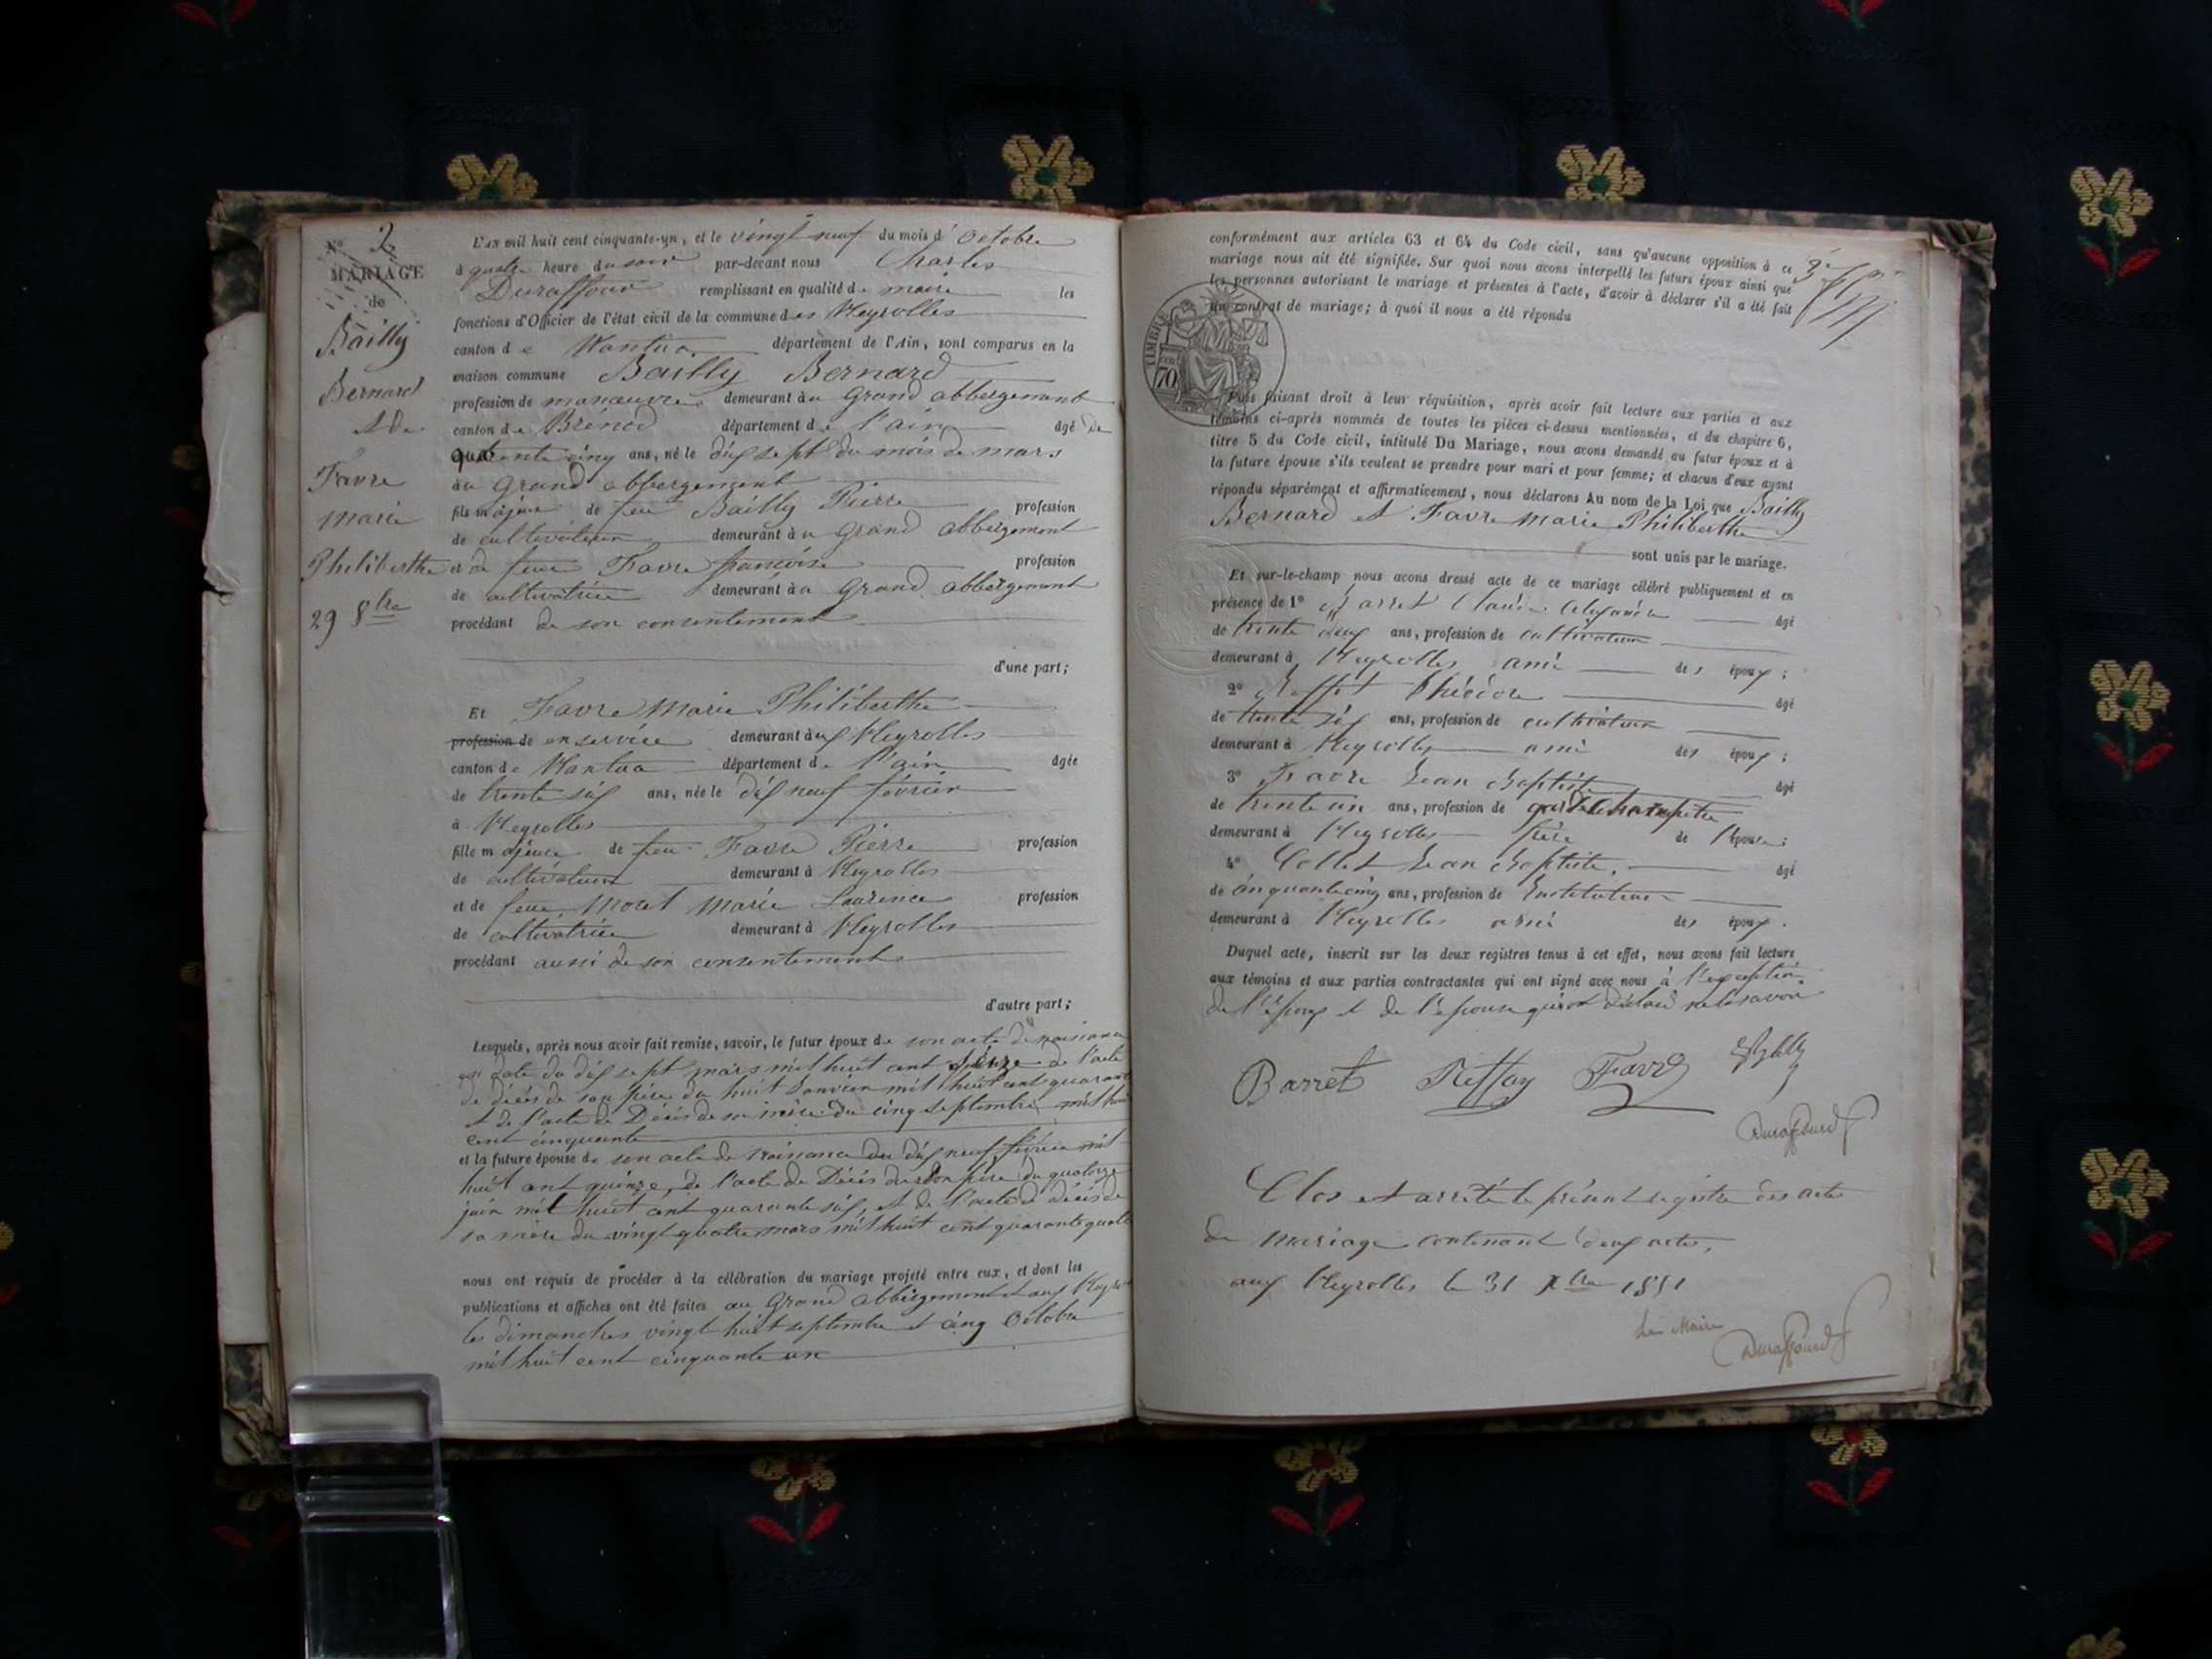 N° 2
MARIAGE
de
Bailly
Bernard
& de
Favre
Marie
Philiberthe
29 8bre
L'AN mil huit cent cinquante-un, et le vingt neuf du mois d' Octobre
à quatre heure du soir par-devant nous Charles
Duraffour remplissant en qualité de maire les
fonctions d'Officier de l'état civil de la commune des Neyrolles
canton de Nantua département de l'Ain, sont comparus en la
maison commune Bailly Bernard
profession de manœuvre demeurant au Grand abbergement
canton de Brénod département de l'ain âgé de
quarente cinq ans, né le dix sept du mois de mars
au Grand abbergement
fils majeur de feu Bailly Pierre profession
de cultivateur demeurant au Grand abbergement
et de feue Favre françoise profession
de cultivatrice demeurant au Grand abbergement
procédant de son consentement
d'une part;
Et Favre Marie Philiberthe
profession de en service demeurant aux Neyrolles
canton de Nantua département de l'ain âgée
de trente six ans, née le dix neuf février
à Neyrolles
fille majeure de feu Favre Pierre profession
de cultivateur demeurant à Neyrolles
et de feue Moret Marie Laurence profession
de cultivatrice demeurant à Neyrolles
procédant aussi de son consentement
d'autre part;
Lesquels, après nous avoir fait remise, savoir, le futur époux de son acte de naissance
en date du dix sept mars mil huit cent de l'acte
de décès de son père du huit Janvier mil huit cent quarante
et de l'acte de Décès de sa mère du cinq septembre mil huit
cent cinquante
et la future épouse de son acte de naissance du dix neuf février mil
huit cent quinze, de l'acte de Décès de son père du quatorze
juin mil huit cent quarante six, et de l'acte de décès de
sa mère du vingt quatre mars mil huit cent quarante quatre
nous ont requis de procéder à la célébration du mariage projeté entre eux, et dont les
publications et affiches ont été faites au Grand abbergement et aux Neyrolles
les dimanches vingt huit septembre et cinq Octobre
mil huit cent cinquante un
conformément aux articles 63 et 64 du Code civil, sans qu'aucune opposition à ce
mariage nous ait été signifiée. Sur quoi nous avons interpellé les futurs époux ainsi que
les personnes autorisant le mariage et présentes à l'acte, d'avoir à déclarer s'il a été fait
un contrat de mariage; à quoi il nous a été répondu
TIMBRE
70
Puis faisant droit à leur réquisition, après avoir fait lecture aux parties et aux
témoins ci-après nommés de toutes les pièces ci-dessus mentionnées, et du chapitre 6,
titre 5 du Code civil, intitulé Du Mariage, nous avons demandé au futur époux et à
la future épouse s'ils veulent se prendre pour mari et pour femme; et chacun d'eux ayant
répondu séparément et affirmativement, nous déclarons Au nom de la Loi que Bailly
Bernard et Favre Marie Philiberthe
sont unis par le mariage.
Et sur-le-champ nous avons dressé acte de ce mariage célébré publiquement et en
présence de 1° Barret Claude Alexandre âgé
de trente deux ans, profession de cultivateur
demeurant à Neyrolles ami des époux;
2° Reffet Théodore âgé
de trente six ans, profession de cultivateur
demeurant à Neyrolles ami des époux;
3° Favre Jean Baptiste âgé
de trente un ans, profession de garde champêtre
demeurant à Neyrolles frère de l'épouse;
4° Collet Jean Baptiste, âgé
de cinquante cinq ans, profession de Instituteur
demeurant à Neyrolles ami des époux.
Duquel acte, inscrit sur les deux registres tenus à cet effet, nous avons fait lecture
aux témoins et aux parties contractantes qui ont signé avec nous à l'exception
de l'époux et de l'épouse qui ont déclaré ne le savoir
Barret Favre
Duraffourd
Clos et arrêté le présent registre des actes
de mariage contenant deux actes,
aux Neyrolles le 31 Xbre 1851
Le Maire
Duraffourd